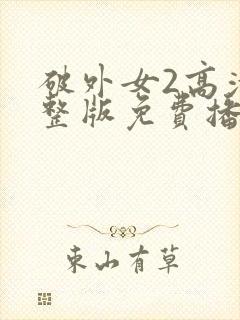 破外女2高清
整版免費播
東山有草